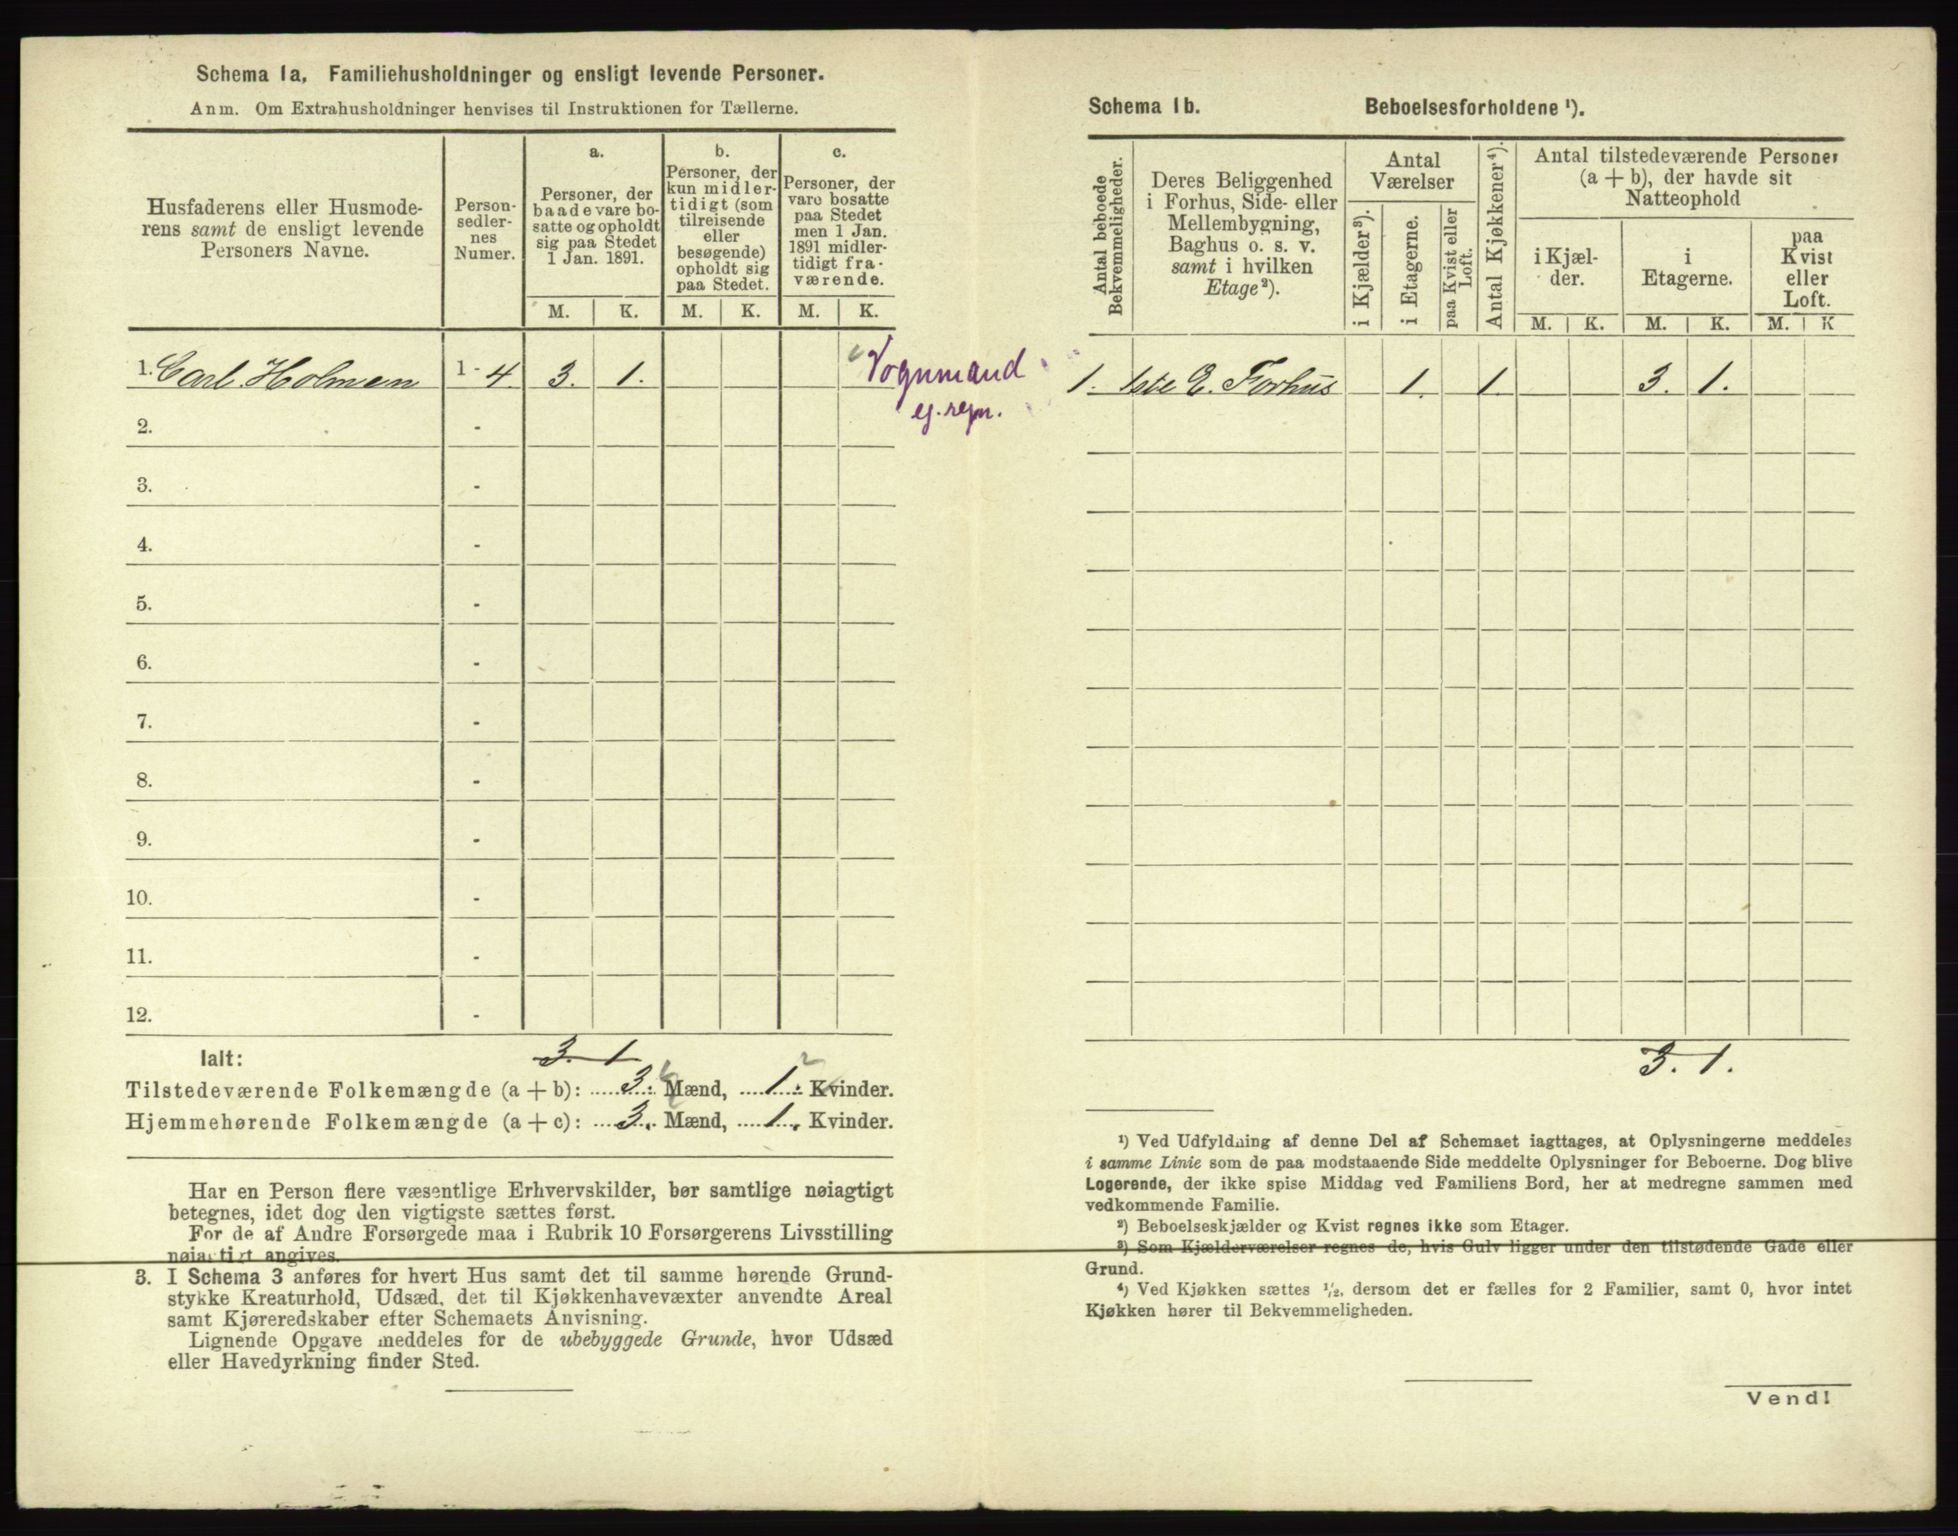 Schema 1a, Familiehusholdninger og ensligt levende Personer.
Anm. Om Extrahusholdninger henvises til Instruktionen for Tællerne.
Husfaderens eller Husmode-
rens samt de ensligt levende
Personers Navne.
Person-
sedler-
nes
Numer.
a.
Personer, der
baade vare bo-
satte og opholdt
sig paa Stedet
1 Jan. 1891.
b.
Personer, der
kun midler-
tidigt (som
tilreisende
eller
besøgende)
opholdt sig
paa Stedet.
c.
Personer, der
vare bosatte
paa Stedet
men 1 Jan.
1891 midler-
tidigt fra-
værende.
M. K. M. K. M. K.
1. Carl. Holmen 1 - 4 3. 1.
Vognmand
ej. regn.
2. -
3. -
4. -
5. -
6. -
7. -
8. -
9. -
10. -
11. -
12. -
Ialt: 3. 1
2
Tilstedeværende Folkemængde (a + b): 3. Mænd, 1. Kvinder.
Hjemmehørende Folkemængde (a + c): 3. Mænd, 1. Kvinder.
Har en Person flere væsentlige Erhvervskilder, bør samtlige nøiagtigt
betegnes, idet dog den vigtigste sættes først.
For de af Andre Forsørgede maa i Rubrik 10 Forsørgerens Livsstilling
nøiagtigt angives.
3. I Schema 3 anføres for hvert Hus samt det til samme hørende Grund-
stykke Kreaturhold, Udsæd, det til Kjøkkenhavevæxter anvendte Areal
samt Kjøreredskaber efter Schemaets Anvisning.
Lignende Opgave meddeles for de ubebyggede Grunde, hvor Udsæd
eller Havedyrkning finder Sted.
Schema 1b. Beboelsesforholdene ¹).
Antal beboede
Bekvemmeligheder.
Deres Beliggenhed
i Forhus, Side- eller
Mellembygning,
Baghus o. s. v.
samt i hvilken
Etage²).
Antal
Værelser
i Kjælder³).
i Etagerne.
paa Kvist eller
Loft.
Antal Kjøkkener⁴).
Antal tilstedeværende Personer
(a + b), der havde sit
Natteophold
i Kjæl-
der.
i
Etagerne.
paa
Kvist
eller
Loft.
M. K. M. K. M. K
1. 1ste E. Forhus 1. 1. 3. 1.
3. 1.
¹) Ved Udfyldning af denne Del af Schemaet iagttages, at Oplysningerne meddeles
i samme Linie som de paa modstaaende Side meddelte Oplysninger for Beboerne. Dog blive
Logerende, der ikke spise Middag ved Familiens Bord, her at medregne sammen med
vedkommende Familie.
²) Beboelseskjælder og Kvist regnes ikke som Etager.
³) Som Kjælderværelser regnes de, hvis Gulv ligger under den tilstødende Gade eller
Grund.
⁴) Ved Kjøkken sættes ½, dersom det er fælles for 2 Familier, samt 0, hvor intet
Kjøkken hører til Bekvemmeligheden.
Vend!